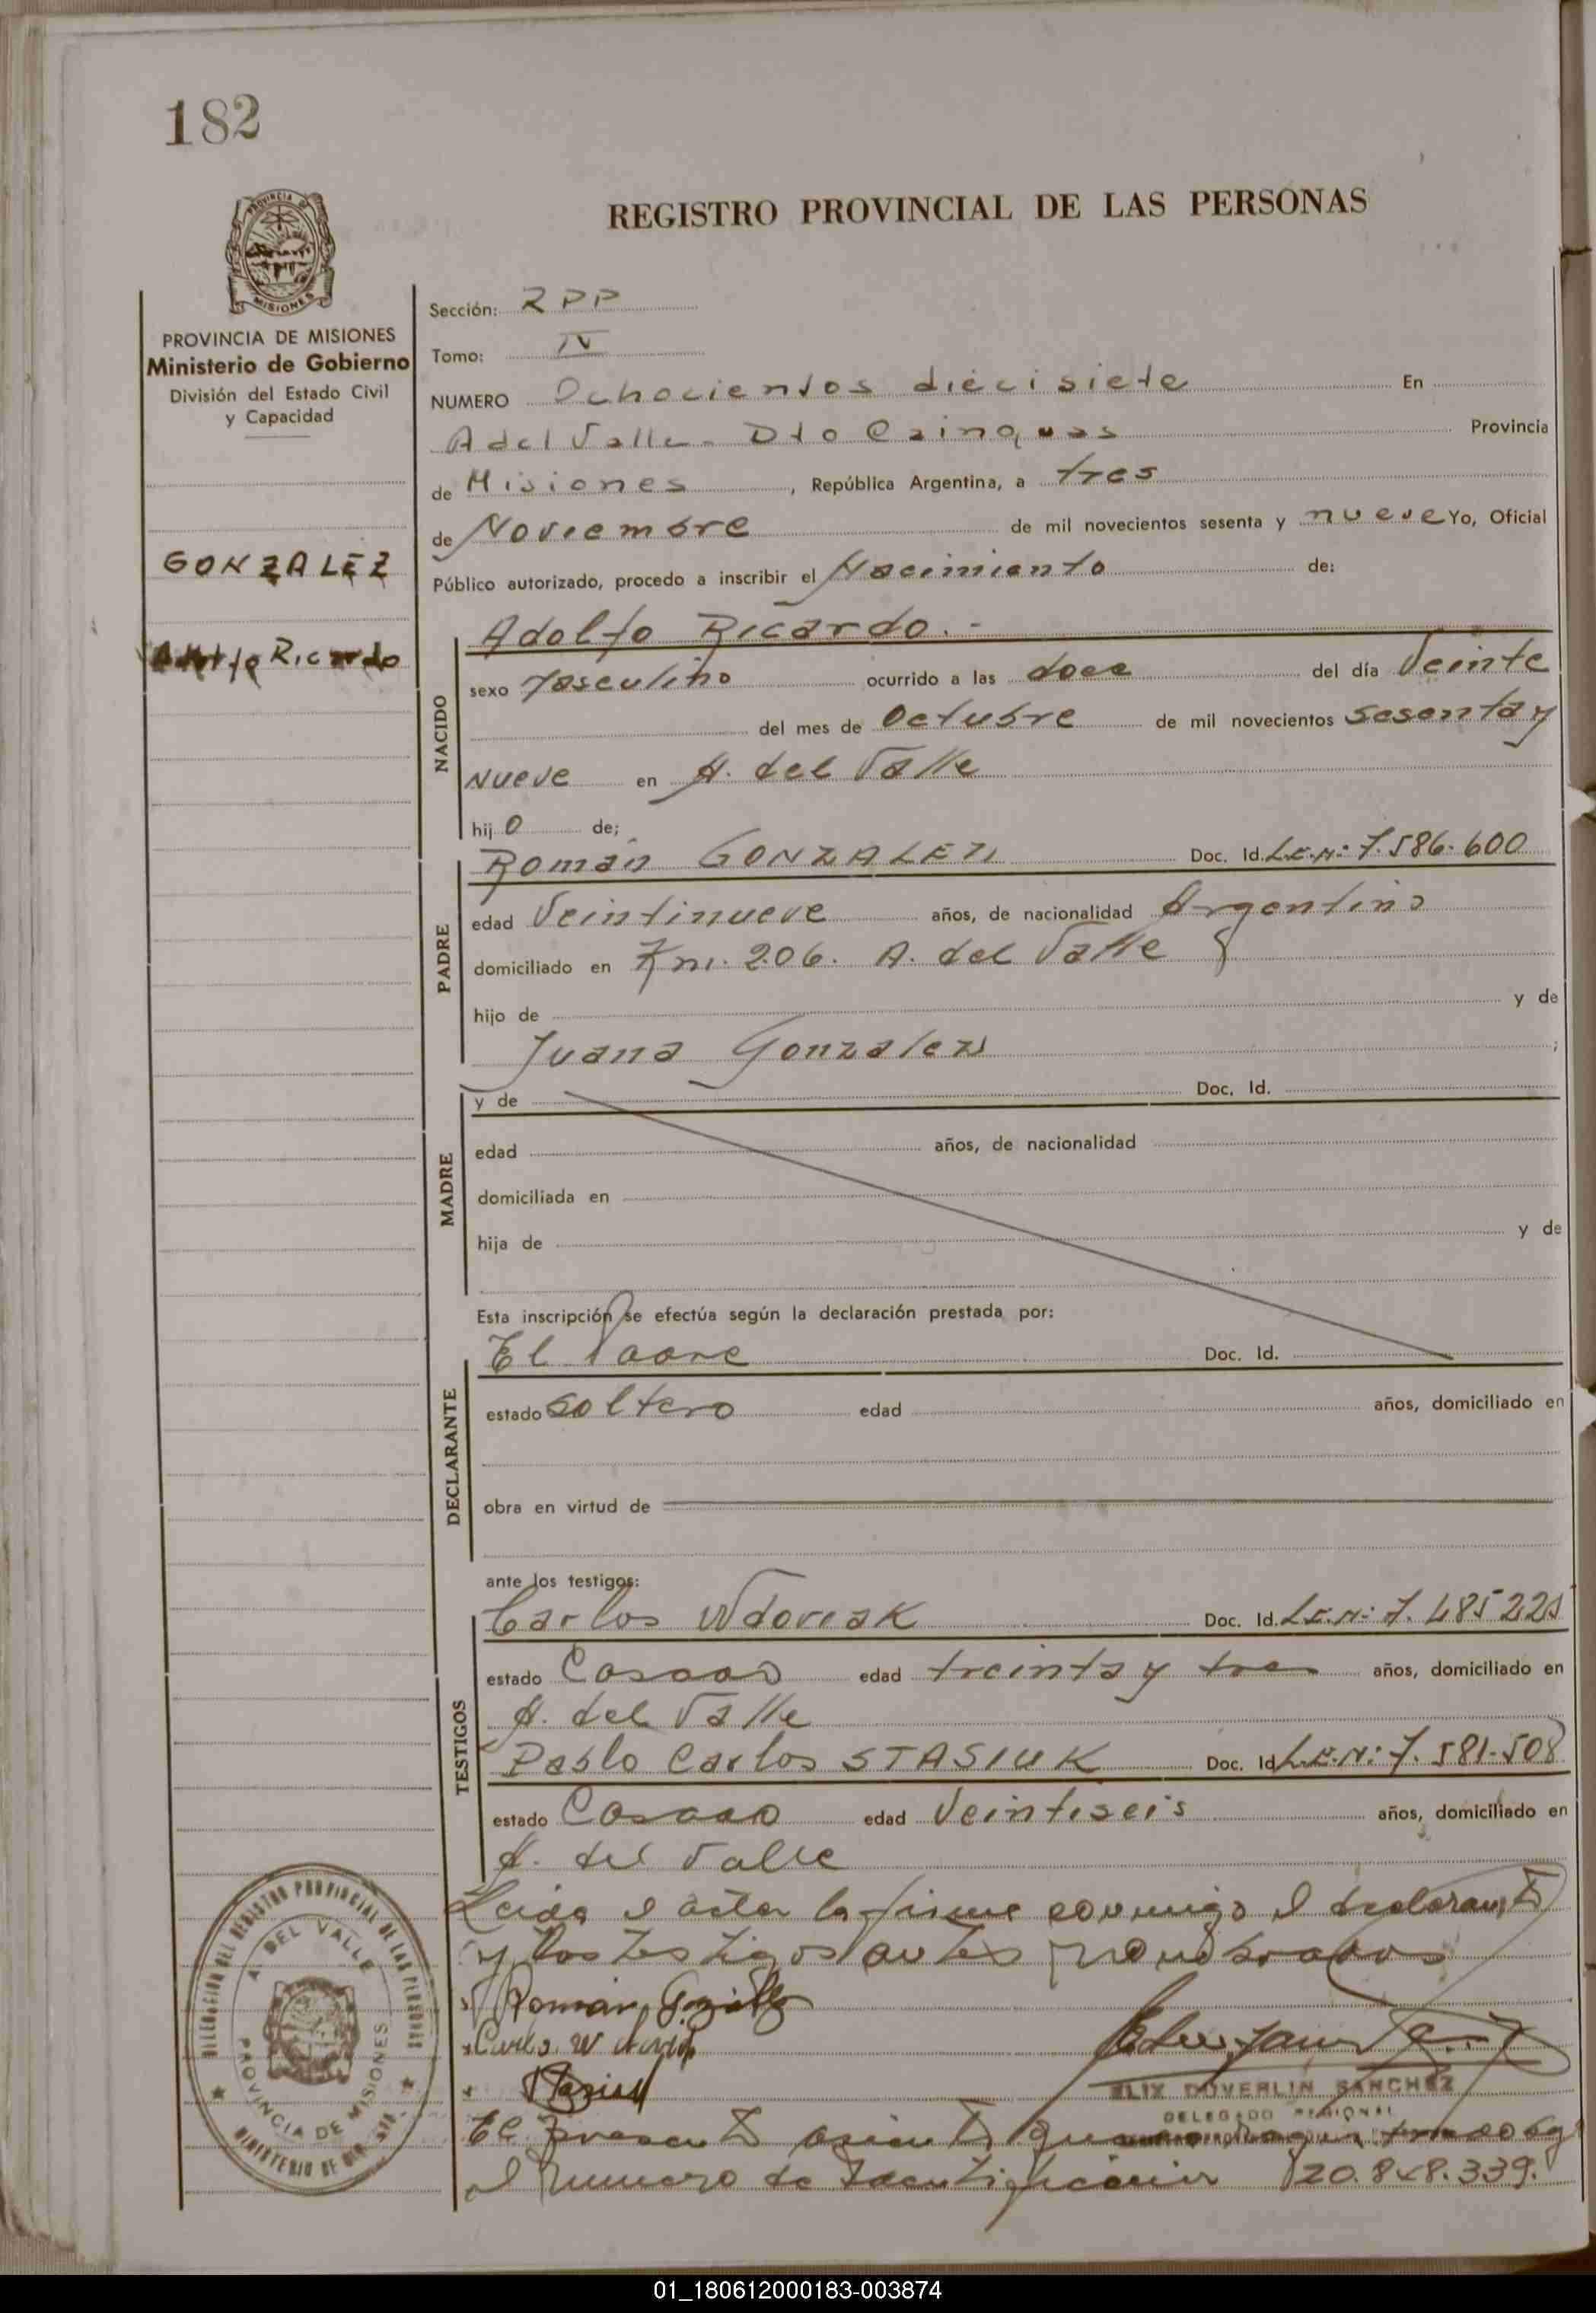 182
PROVINCIA DE MISIONES
REGISTRO PROVINCIAL DE LAS PERSONAS
PROVINCIA DE MISIONES
Ministerio de Gobierno
División del Estado Civil
y Capacidad
GONZALEZ
Ricardo
Sección: RPP
Tomo: IV
NUMERO Ochocientos diecisiete En
A del Valle - Dto Cainguas Provincia
de Misiones, República Argentina, a tres
de Noviembre de mil novecientos sesenta y nueve Yo, Oficial
Público autorizado, procedo a inscribir el Nacimiento de:
NACIDO
Adolfo Ricardo.-
sexo Masculino ocurrido a las doce del día Veinte
del mes de Octubre de mil novecientos sesenta y
Nueve en A. del Valle
hijo de;
PADRE
Román GONZALEZ Doc. Id. L.E.N: 7.586.600
edad Veintinueve años, de nacionalidad Argentina
domiciliado en Km. 206. A. del Valle
hijo de y de
Juana Gonzalez ;
MADRE
y de Doc. Id.
edad años, de nacionalidad
domiciliada en
hija de y de
Esta inscripción se efectúa según la declaración prestada por:
DECLARANTE
El Padre Doc. Id.
estado soltero edad años, domiciliado en
obra en virtud de
ante los testigos:
TESTIGOS
Carlos Wdoviak Doc. Id. L.E.N: 7.
estado Casado edad treinta y tres años, domiciliado en
A. del Valle
Pablo Carlos STASIUK Doc. Id L.E.N: 7.581-508
estado Casado edad Veintiseis años, domiciliado en
A. del Valle
Leida el acta la firma conmigo el declarante
y los testigos antes nombrados
Roman
Carlos
ELIX DUVERLIN SANCHEZ
DELEGADO REGIONAL
El presente asiento
el numero de Identificación 20.848.339.
DELEGACION DEL REGISTRO PROVINCIAL DE LAS PERSONAS
A DEL VALLE
PROVINCIA DE MISIONES
MINISTERIO DE
01_180612000183-003874